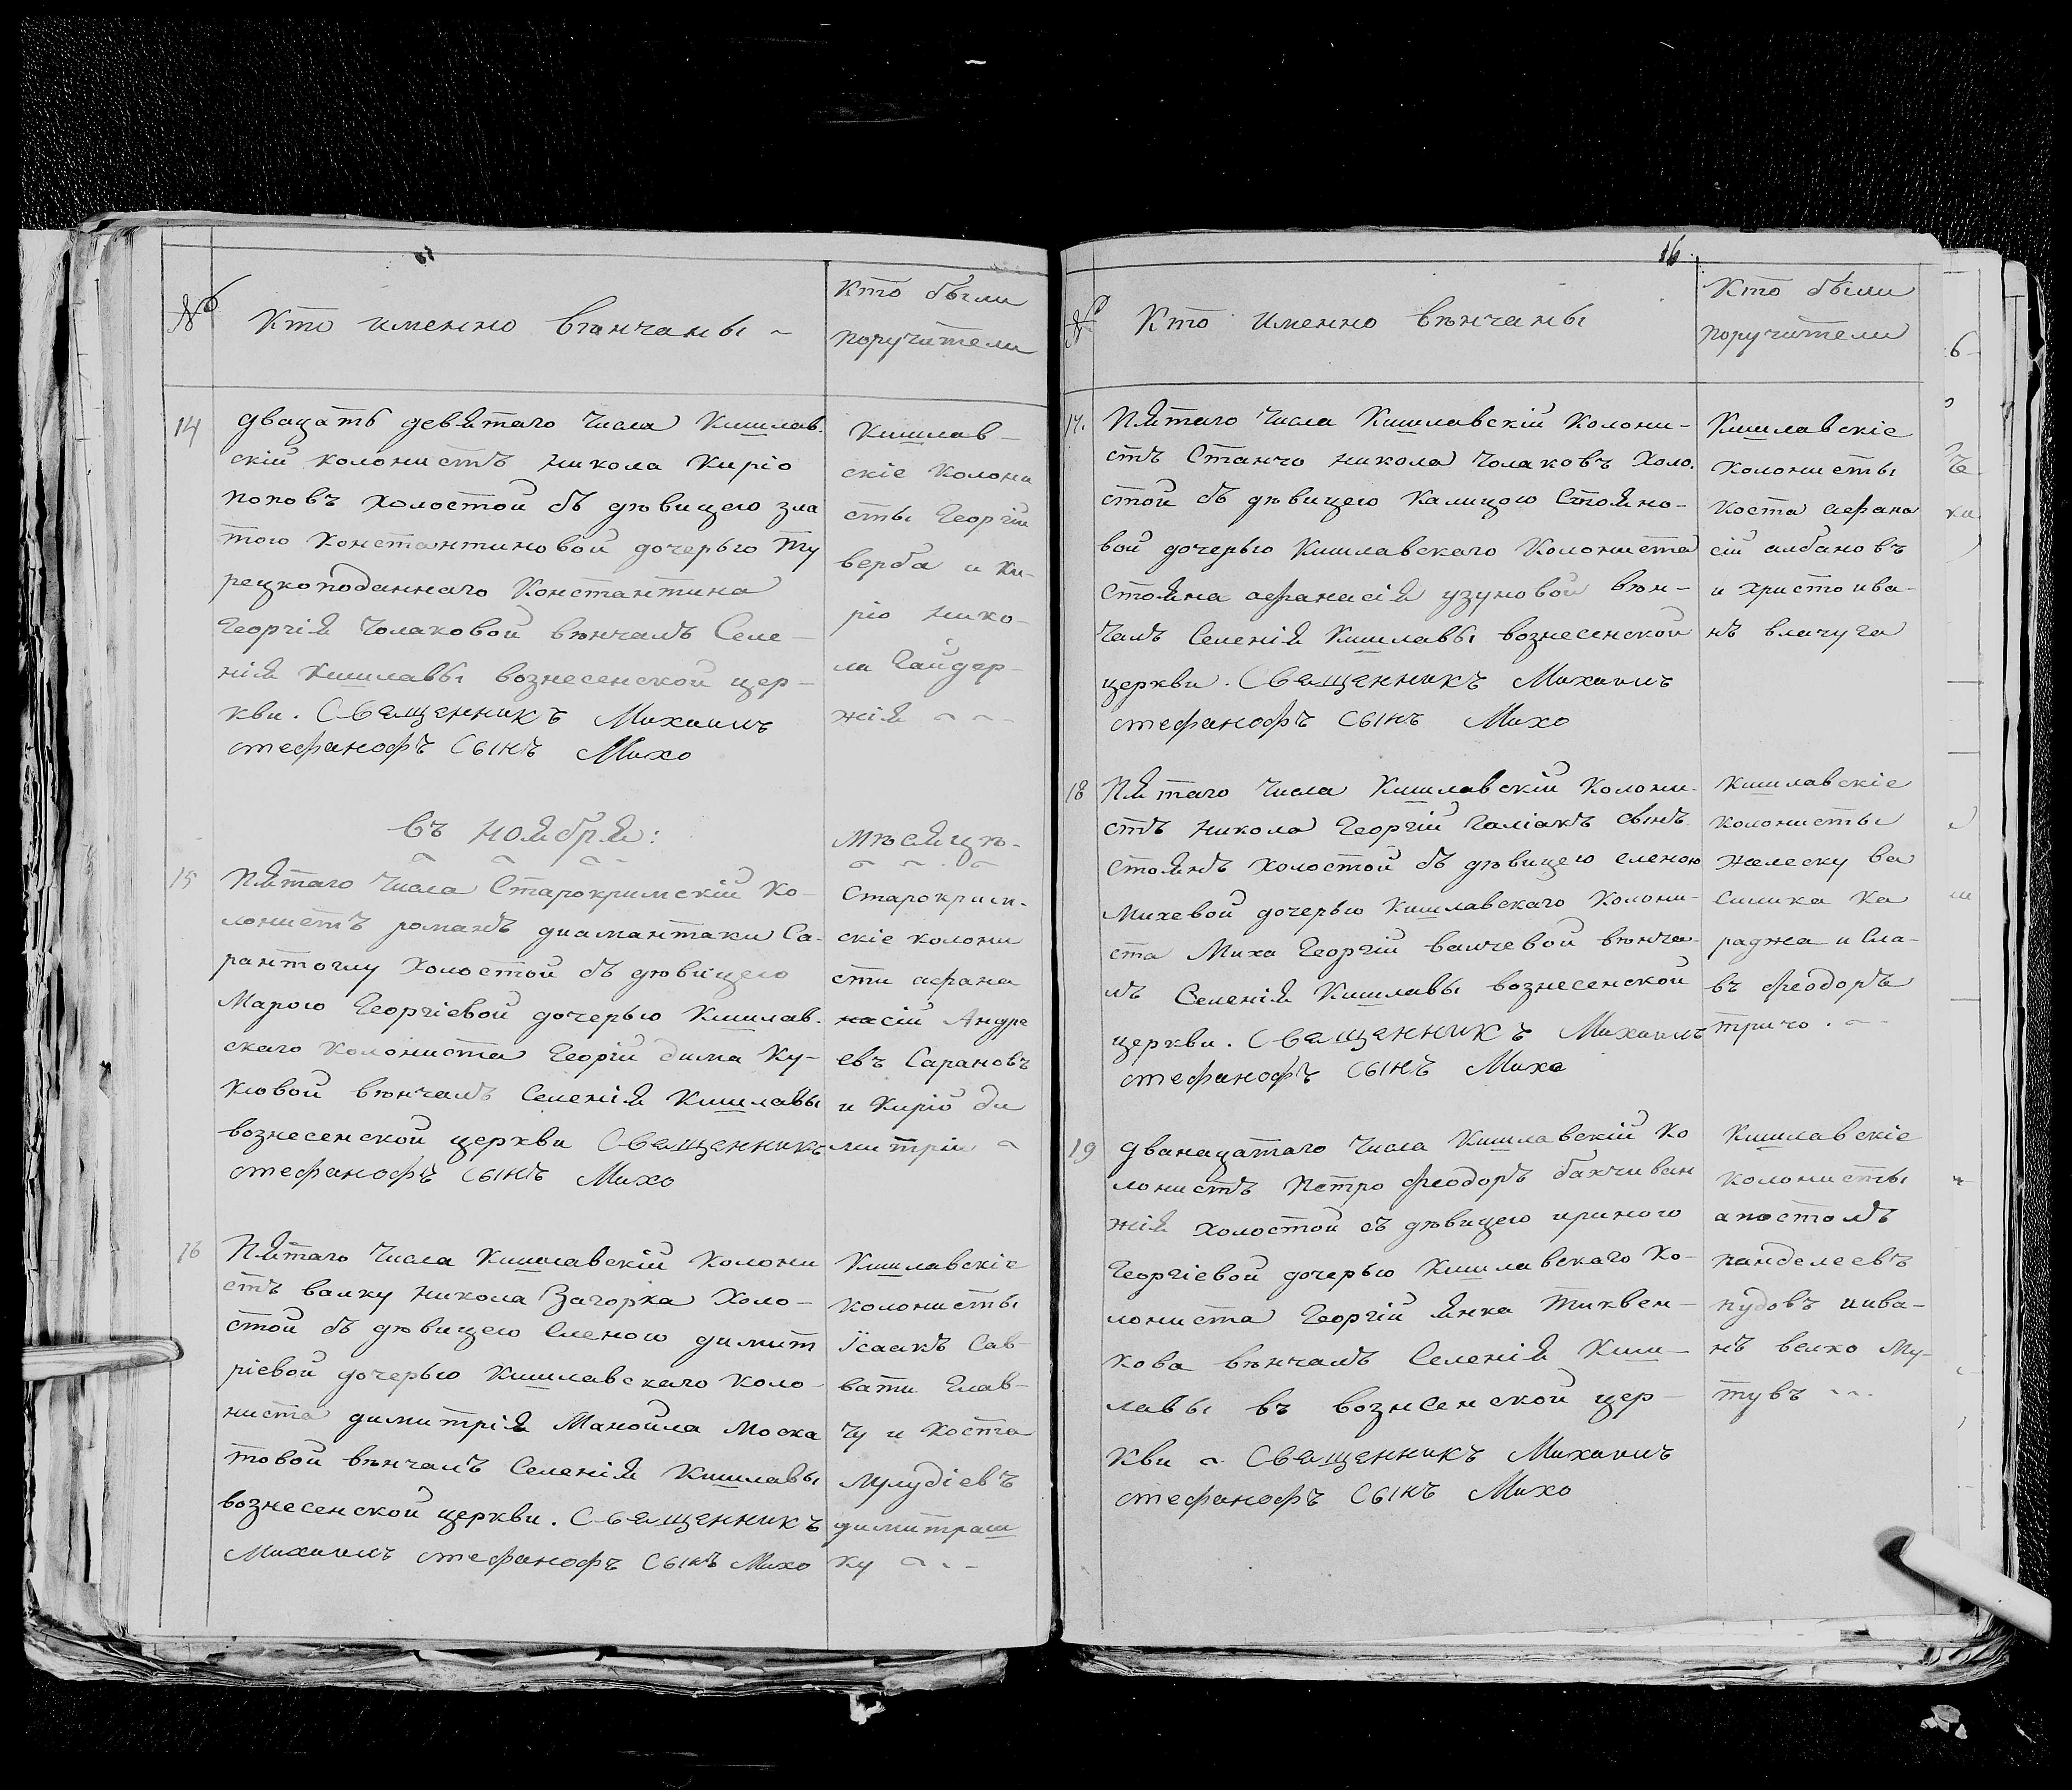 №
Кто именно вѣнчаны
Кто были
поручители
14
двацать девятаго числа Кишлав-
скій колонистъ никола Кирїо
поповъ холостой съ дѣвицею зла
тою Константиновой дочерью ту
рецкоподаннаго Константина
Георгія Чолаковой вѣнчалъ Селе-
нія Кишлавы вознесенской цер-
кви. Священникъ Михаилъ
стефанофъ Сынъ Михо
Кишлав-
скіе колони
сты Георгій
верба и Ки-
ріо нико-
ла Гайдар-
жія
въ ноября:
мѣсяцѣ.
15
Пятаго числа Старокримскій ко-
лонистъ романъ диамантаки Са-
рантоглу холостой съ дѣвицею
Марою Георгіевой дочерью Кишлав-
скаго колониста Георгій дима Ку-
ковой вѣнчалъ Селенія Кишлавы
вознесенской церкви Священникъ
стефанофъ Сынъ Михо
Старокрим-
скіе колони
сти афана
насій Андре
евъ Сарановъ
и Киріо ди
митрій
16
Пятаго числа Кишлавскій колони
стъ валку никола Загорка холо-
стой съ дѣвицею Еленою димит
ріевой дочерью Кишлавскаго коло-
ниста димитрія Манойла моска
товой вѣнчалъ Селенія Кишлавы
вознесенской церкви. Священникъ
Михаилъ стефанофъ Сынъ Михо
Кишлавскіе
колонисты
Їсаакъ Сав-
вати Глав-
чу и коста
лулудіевъ
димитраш
ку
16.
№
Кто именно вѣнчаны
Кто были
поручители
17.
Пятаго числа Кишлавскій колони-
стъ Станчо никола чолаковъ холо-
стой съ дѣвицею Калицою Стояно-
вой дочерью Кишлавскаго колониста
стояна афанасія узуновой вѣн-
чалъ Селенія Кишлавы вознесенской
церкви. Священникъ Михаилъ
стефанофъ Сынъ Михо
Кишлавскіе
колонисты
коста афана
сій албановъ
и христо ива-
нъ влачуга
18
Пятаго числа Кишлавскій колони-
стъ никола Георгій Галіакъ сынъ
стоянъ холостой съ дѣвицею еленою
Михевой дочерью Кишлавскаго колони-
ста Миха Георгій валчевой вѣнча-
лъ Селенія Кишлавы вознесенской
церкви. Священникъ Михаилъ
стефанофъ Сынъ Михо
Кишлавскіе
колонисты
желеску ва
силика ка
раджа и Сла-
въ феодоръ
тричо.
19
дванацатаго числа Кишлавскій ко
лонистъ Петро феодоръ бакчиван
жія холостой съ дѣвицею ириною
Георгіевой дочерью Кишлавскаго ко-
лониста Георгій янка тиквен-
кова вѣнчалъ Селенія Киш-
лавы въ вознсенской цер-
кви Священникъ Михаилъ
стефанофъ Сынъ Михо
Кишлавскіе
колонисты
апостолъ
панделеевъ
пудовъ иива-
нъ велко му-
тувъ